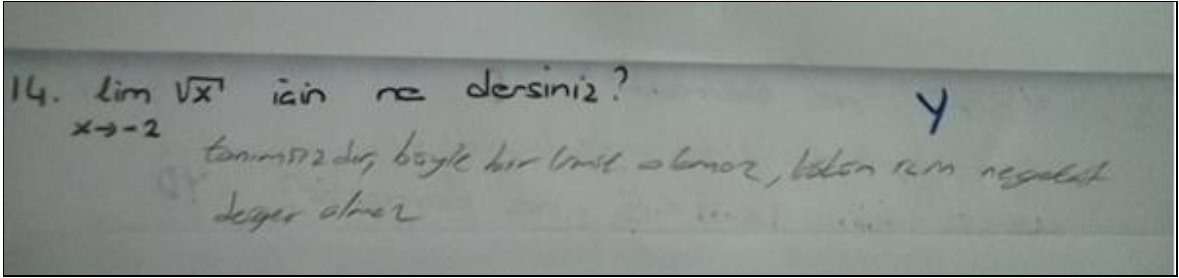 14. lim √x için ne dersiniz? Y
x→-2
tanımsızdır, böyle bir limit olamaz, kökün içi negatif
değer almaz